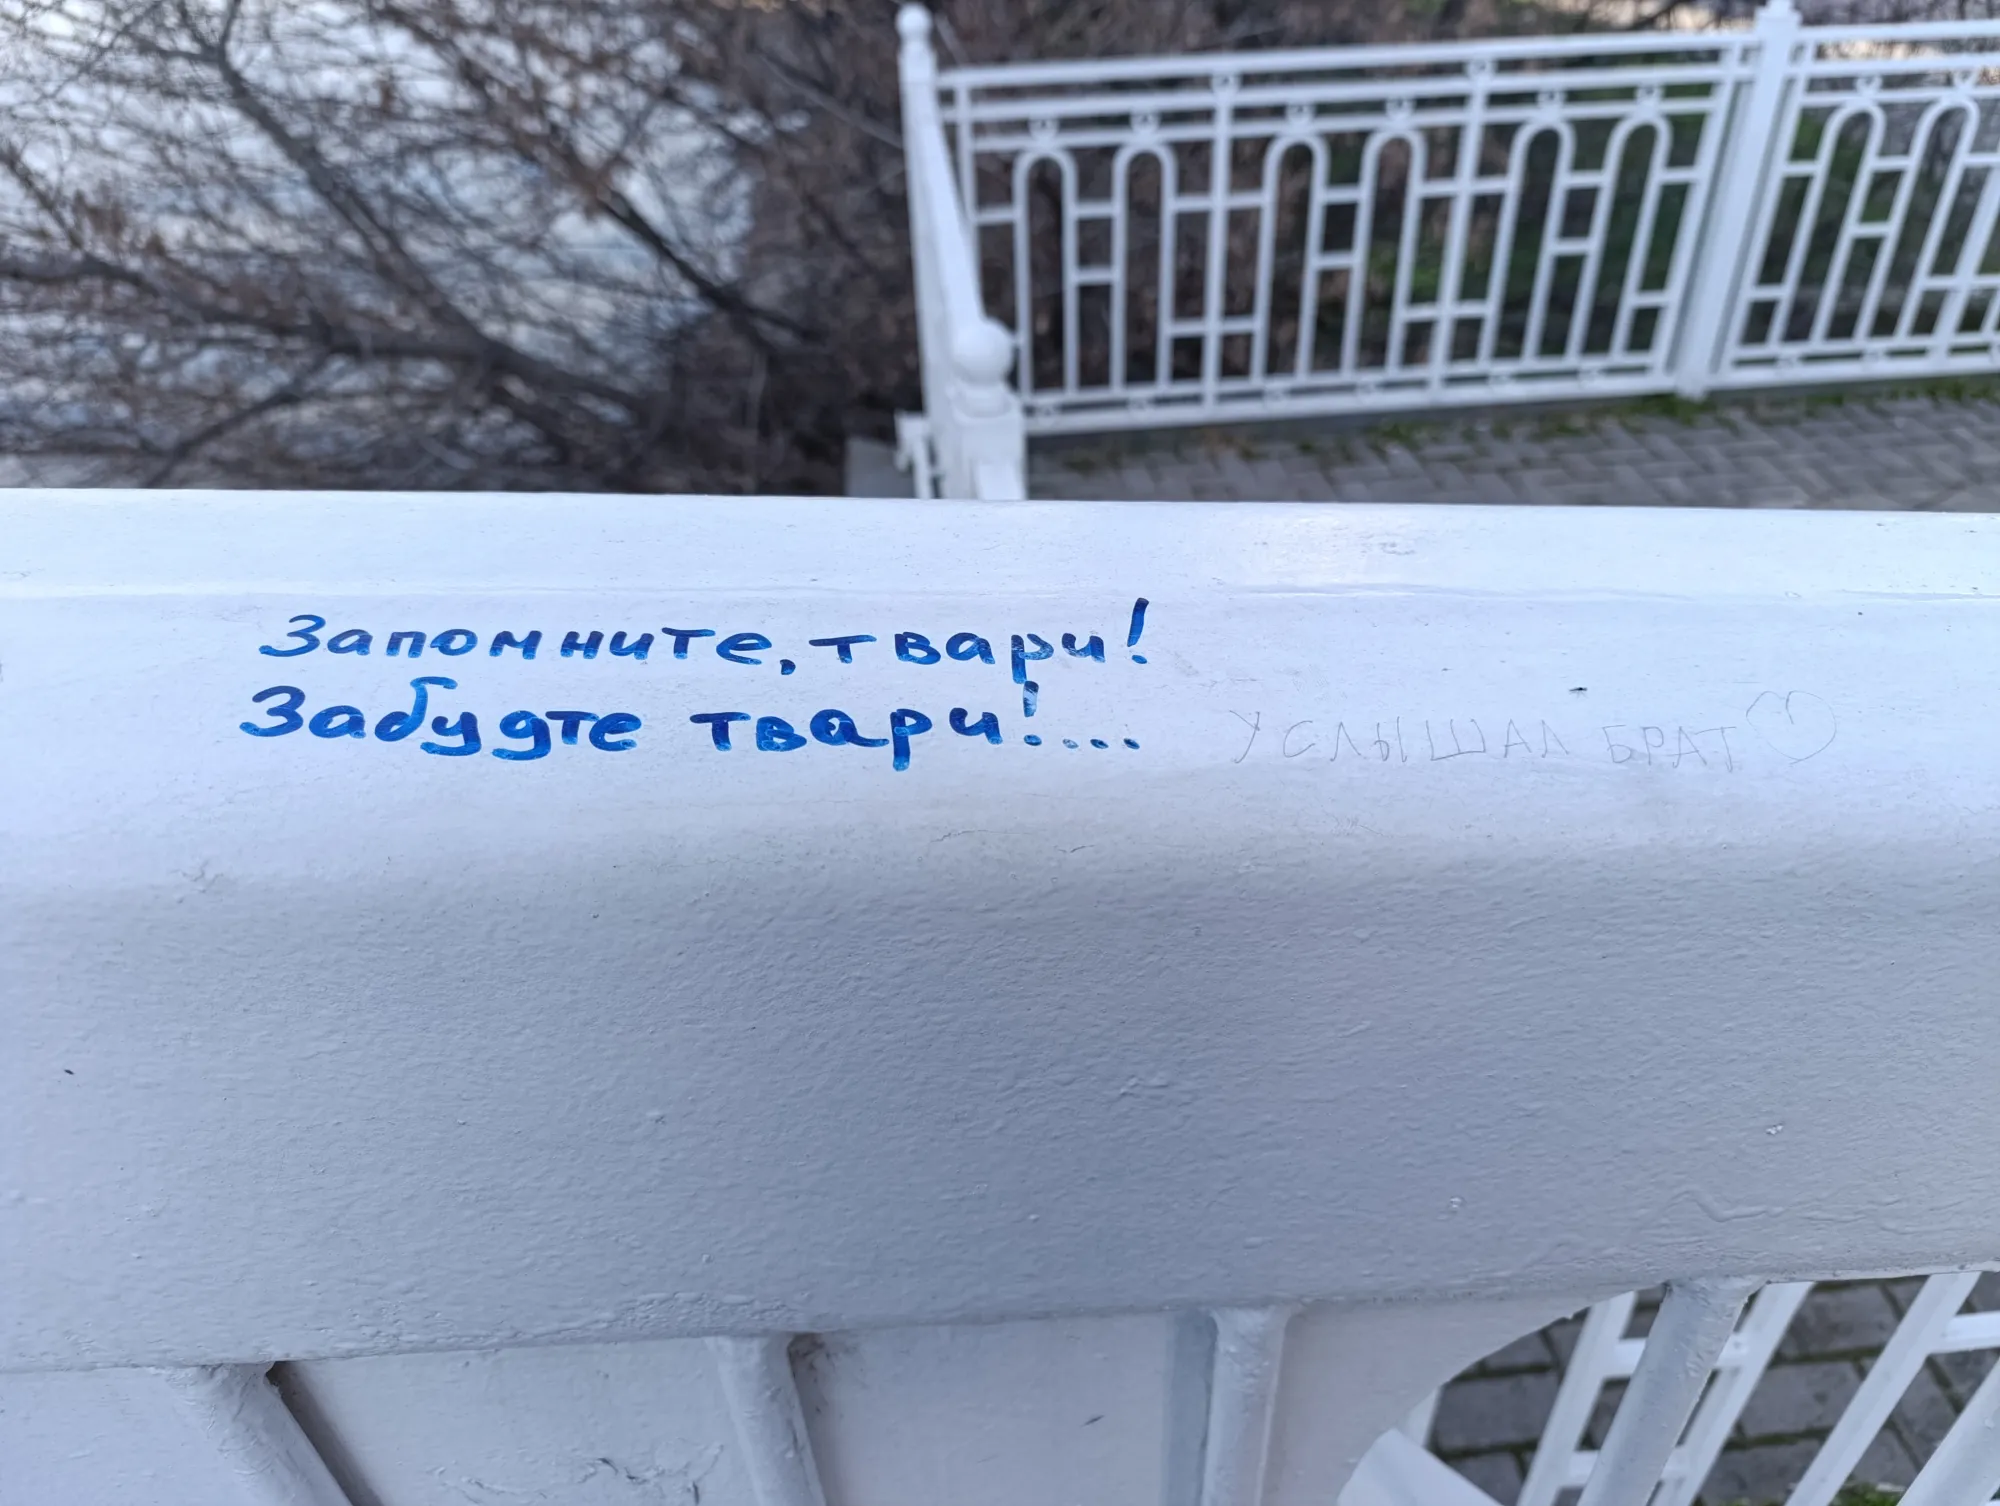 Запомните, твари!
Забудте твари!....
УСЛЫШАЛ БРАТ♡